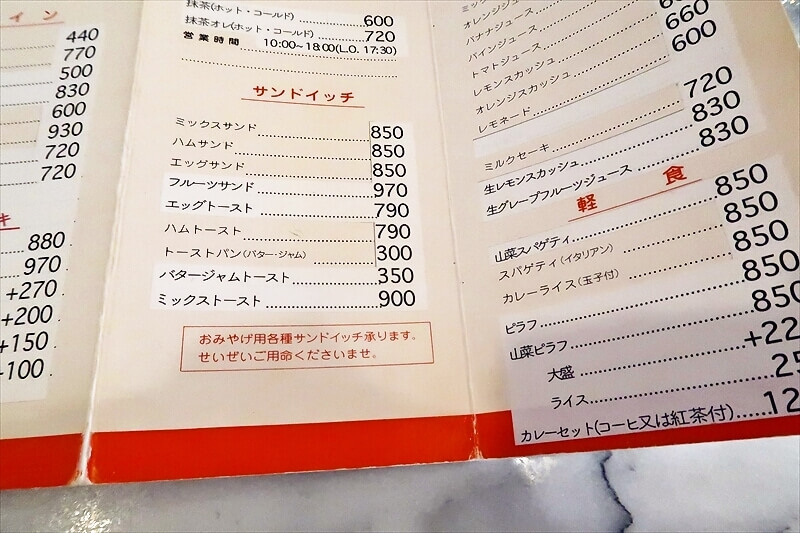 イン
440
770
500
830
600
930
720
720
キ
880
970
+270
+200
+150
-100
抹茶(ホット・コールド) 600
抹茶オレ(ホット・コールド) 720
営業時間 10:00~18:00(L.O. 17:30)
サンドイッチ
ミックスサンド 850
ハムサンド 850
エッグサンド 850
フルーツサンド 970
エッグトースト 790
ハムトースト 790
トーストパン(バター・ジャム) 300
バタージャムトースト 350
ミックストースト 900
おみやげ用各種サンドイッチ承ります。
せいぜいご用命くださいませ。
オレンジジュース
バナナジュース
パインジュース
トマトジュース
レモンスカッシュ
オレンジスカッシュ 660
レモネード 600
ミルクセーキ 720
生レモンスカッシュ 830
生グレープフルーツジュース 830
軽食
山菜スパゲティ 850
スパゲティ(イタリアン) 850
カレーライス(玉子付) 850
ピラフ 850
山菜ピラフ 850
大盛 +22
ライス 25
カレーセット(コーヒ又は紅茶付) 12